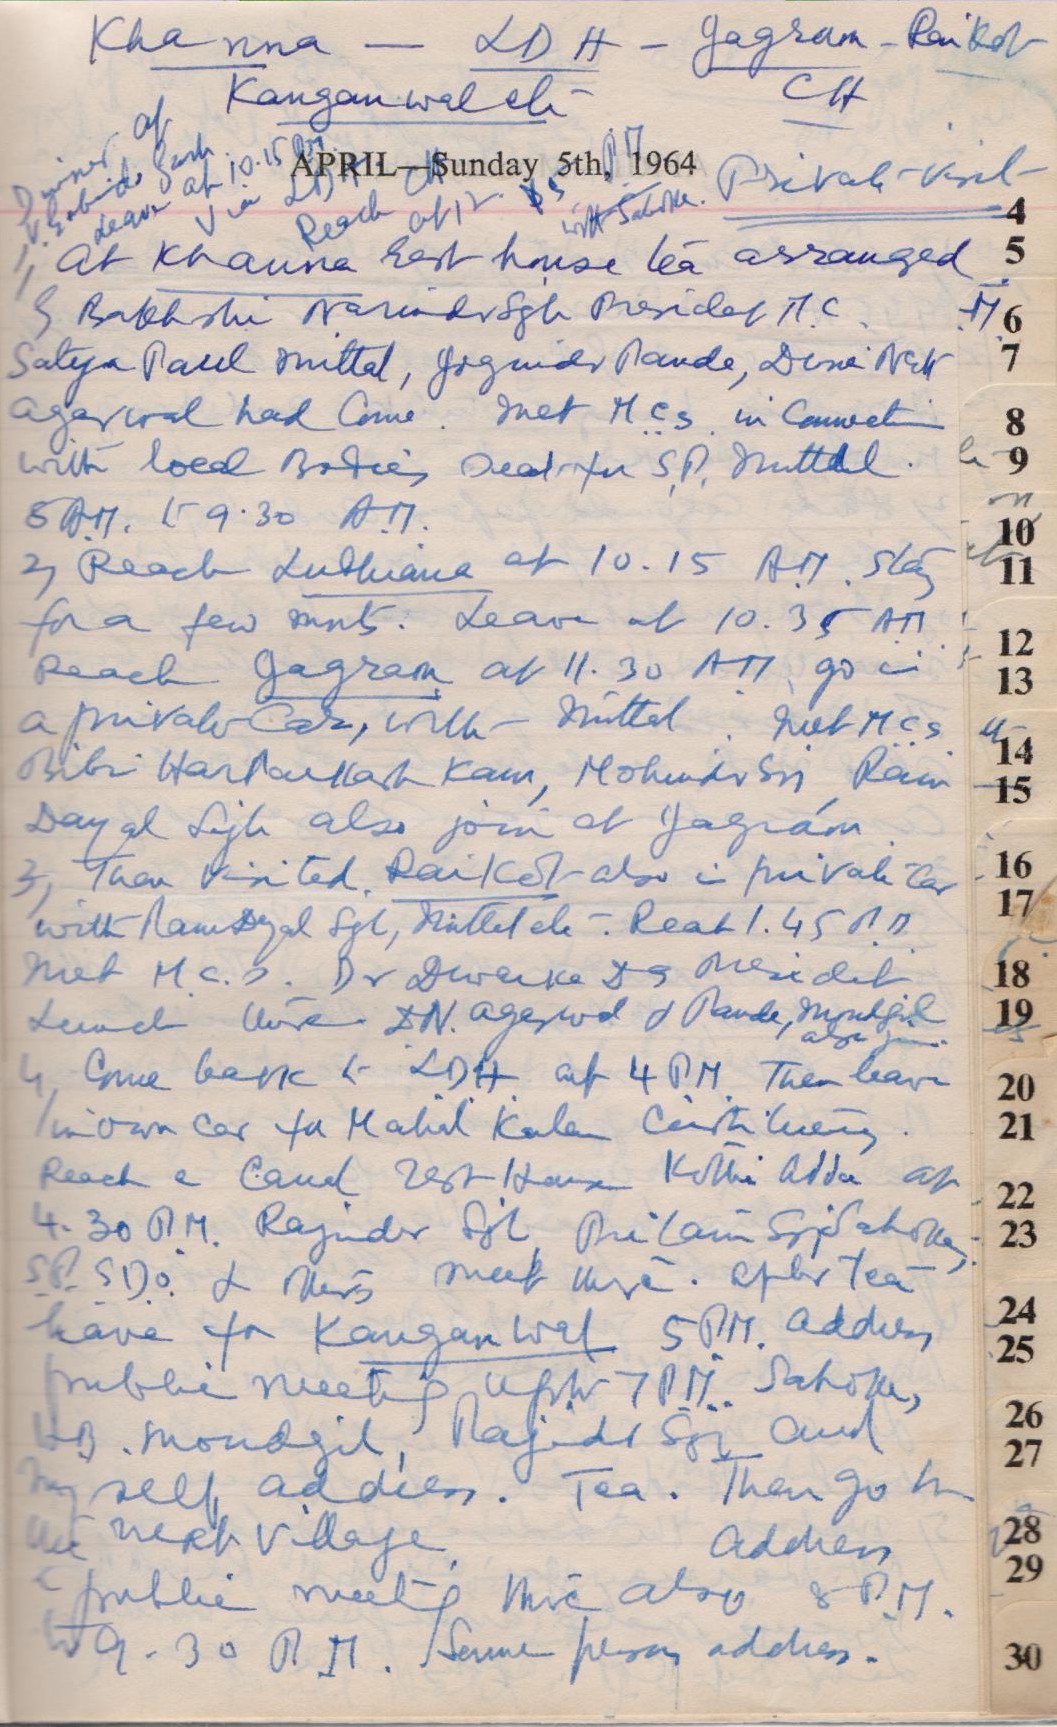 Khanna — LDH — Jagraon - Raikot
Kanganwal etc CH
APRIL—Sunday 5th, 1964
Private-visit
Dinner at
Leave at 10.15 PM
via LDH
Reach CH
at 12.
with Sahoke.
1, At Khanna Rest house tea arranged
by Bakhshi Narindr Sgh President M.C.
Satya Paul Mittal, Jogindr Pande, Dina Nath
Agarwal had come. Met M.Cs. in Connection
with local Bodies Seat for S.P. Mittal.
8 AM. to 9.30 AM.
2, Reach Ludhiana at 10.15 AM. Stay
for a few mnts. Leave at 10.35 AM
Reach Jagraon at 11.30 AM, go in
a private Car, with Mittal. Met M.C.s
Bibi HarParkash Kaur, Mohindr Sgh, Ram
Dayal Sgh also join at Jagraon
3, Then visited Raikot also in private Car
with Ram Dyal Sgh, Mittal etc. Reach 1.45 P.M
Met M.C.s. Dr Dwarka Ds President
Lunch there D.N. Agarwal & Pande, Mondgil
also join.
4, Come back to LDH at 4 PM. Then leave
in own car for Mahal Kalan Constituency.
Reach a Canal Rest House Kothi Adda at
4.30 P.M. Rajinder Sgh, Pritam Sgh Sahoke,
SP. S.D.O. & others meet there. After Tea
leave for Kanganwal 5 PM. Address
public meeting upto 7 P.M. Sahoke,
Mondgil, Rajindr Sgh and
myself address. Tea. Then go to
the next village. Address
public meeting there also 8 P.M.
to 9.30 P.M. Same persons address.
4
5
6
7
8
9
10
11
12
13
14
15
16
17
18
19
20
21
22
23
24
25
26
27
28
29
30